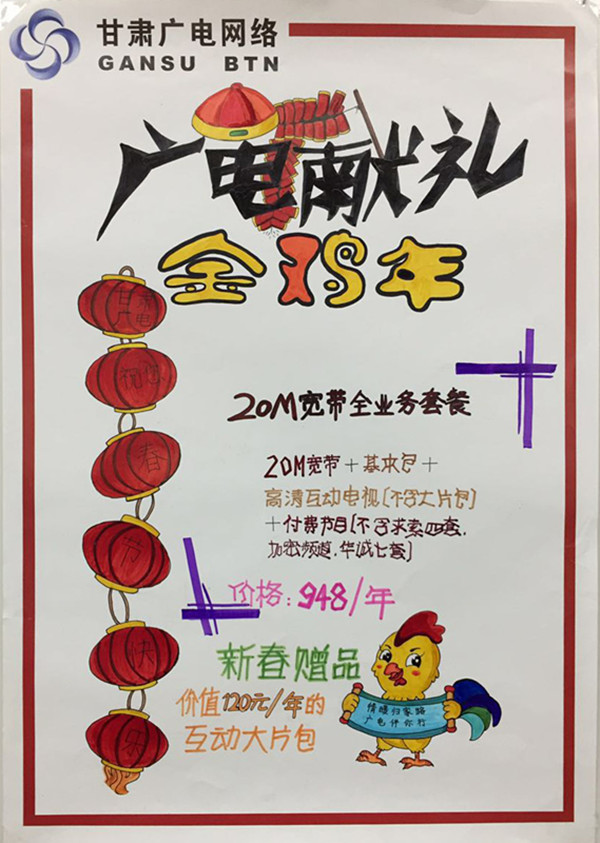 甘肃广电网络
GANSU BTN
广电献礼
金鸡年
甘肃
广电
祝您
春
节
快
乐
20M宽带全业务套餐
20M宽带+基本包+
高清互动电视(不含大片包)
+付费节目(不含求索四套,
加密频道,华诚七套)
价格:948/年
新春赠品
价值120元/年的
互动大片包
情暖归家路
广电伴你行